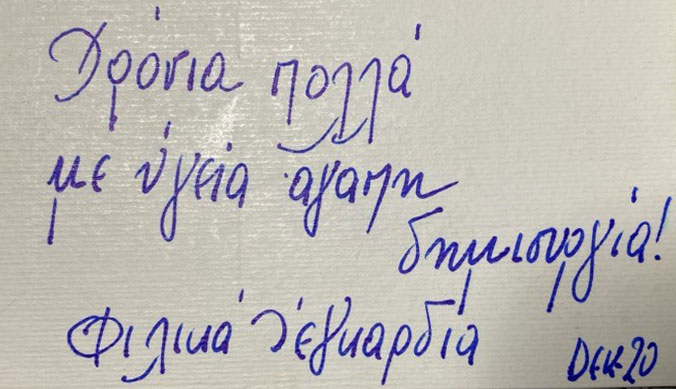 Χρόνια πολλά
με ὑγεία ἀγαπη
δημιουργία!
Φιλικά κ' εγκαρδία
ΔΕΚ 20